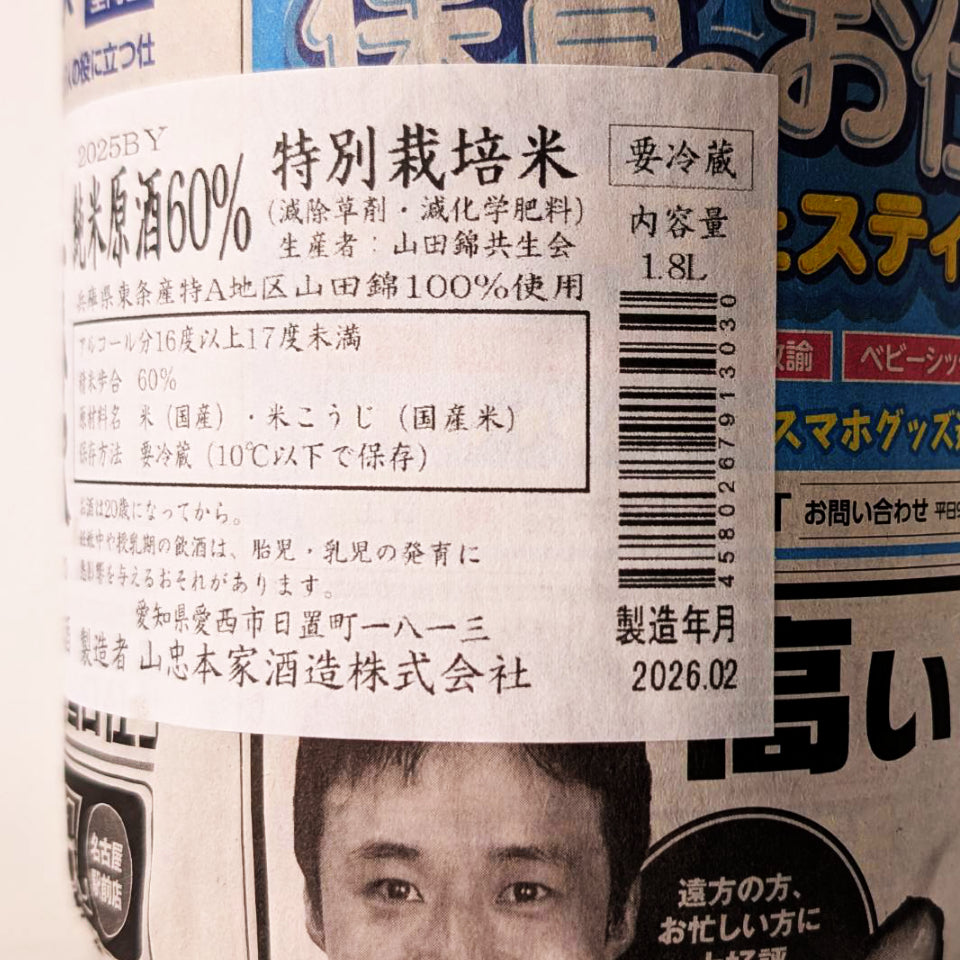 の役に立つ仕
お仕
ェスティ
教諭
ベビーシッ
スマホグッズ
お問い合わせ 平日9
高い
2025BY
純米原酒60%
特別栽培米
(減除草剤・減化学肥料)
生産者：山田錦共生会
兵庫県東条産特A地区山田錦100%使用
アルコール分16度以上17度未満
精米歩合 60%
原材料名 米（国産）・米こうじ（国産米）
保存方法 要冷蔵（10℃以下で保存）
お酒は20歳になってから。
妊娠中や授乳期の飲酒は、胎児・乳児の発育に
悪影響を与えるおそれがあります。
愛知県愛西市日置町一八一三
製造者 山忠本家酒造株式会社
要冷蔵
内容量
1.8L
4580267913030
製造年月
2026.02
名古屋
駅前店
遠方の方、
お忙しい方に
大好評